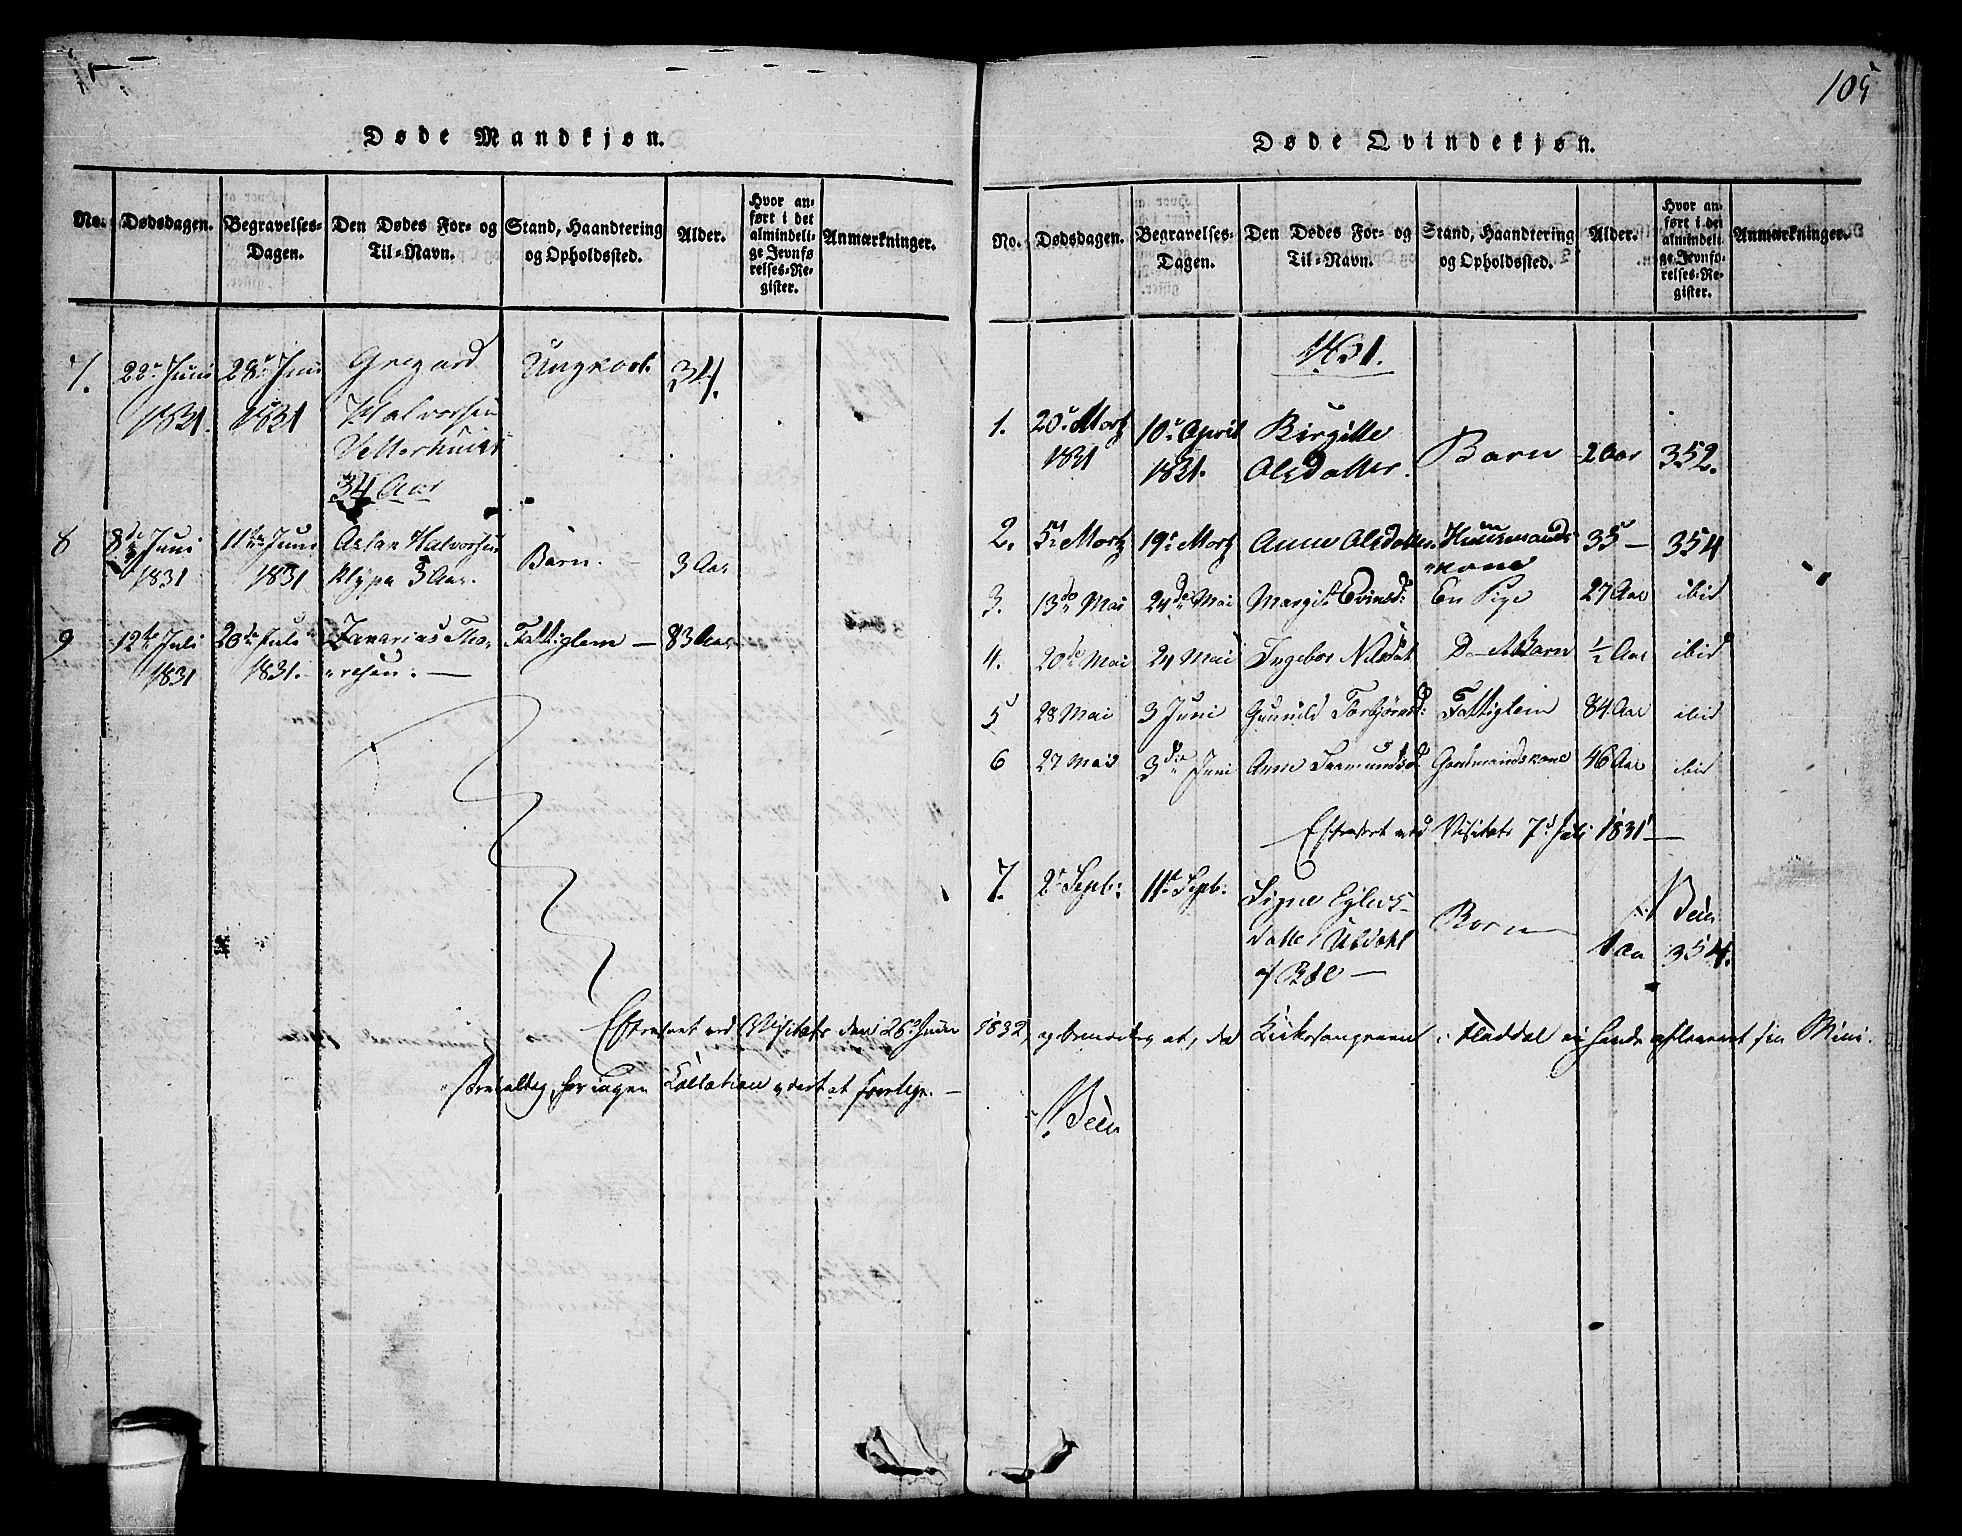 105
Døde Mandkjøn.
No. Dødsdagen. Begravelses-Dagen. Den Dødes For- og Til-Navn. Stand, Haandtering og Opholdssted. Alder. Hvor anført i det almindelige Jevnførelses-Register. Anmærkninger.
7. 22de Juni 28de Juni Gregard Ungkarl. 34.
1831. 1831 Halvorsen
34 Aar
8 8de Juni 11te Juni Aslak Halvorsen Barn. — 3 Aar
1831 1831 Klype 3 Aar.
9 12te Juli 20de Juli Zakarias Tho- Fattiglem — 83 Aar
1831 1831. resen. —
Efterseet ved Visitats den 26de Juni 1832, og bemærkes at, da Kirkesangeren i Flaaddal ei havde afleveret sin Mini-
sterialbog, har ingen Collation været at foretage. —
Bein
Døde Qvindekjøn.
No. Dødsdagen. Begravelses-Dagen. Den Dødes For- og Til-Navn. Stand, Haandtering og Opholdssted. Alder. Hvor anført i det almindelige Jevnførelses-Register. Anmærkninger.
1831.
1. 20de Martz 10de April Birgitte Barn 2 Aar 352.
1831 1831. Olsdatter.
2. 5te Martz 19de Martz Anne Olsdatter Huusmands- 35 — 354
kone
3. 13de Mai 24de Mai Margit Evindsd: En Pige 27 Aar ibid
4. 20de Mai 24 Mai Ingebor Nilsdat Barn ½ Aar ibid
5 28 Mai 3 Juni Gunild Torbjørnsd: Fattiglem 84 Aar ibid
6 27 Mai 3de Juni Anne Saamundsd Gaardmandskone 46 Aar ibid
Efterseet ved Visitats 7de Juli 1831 —
Bein
7. 2de Septb: 11te Septb: Signe Eilevs- Barn 1 Aar 354.
datter